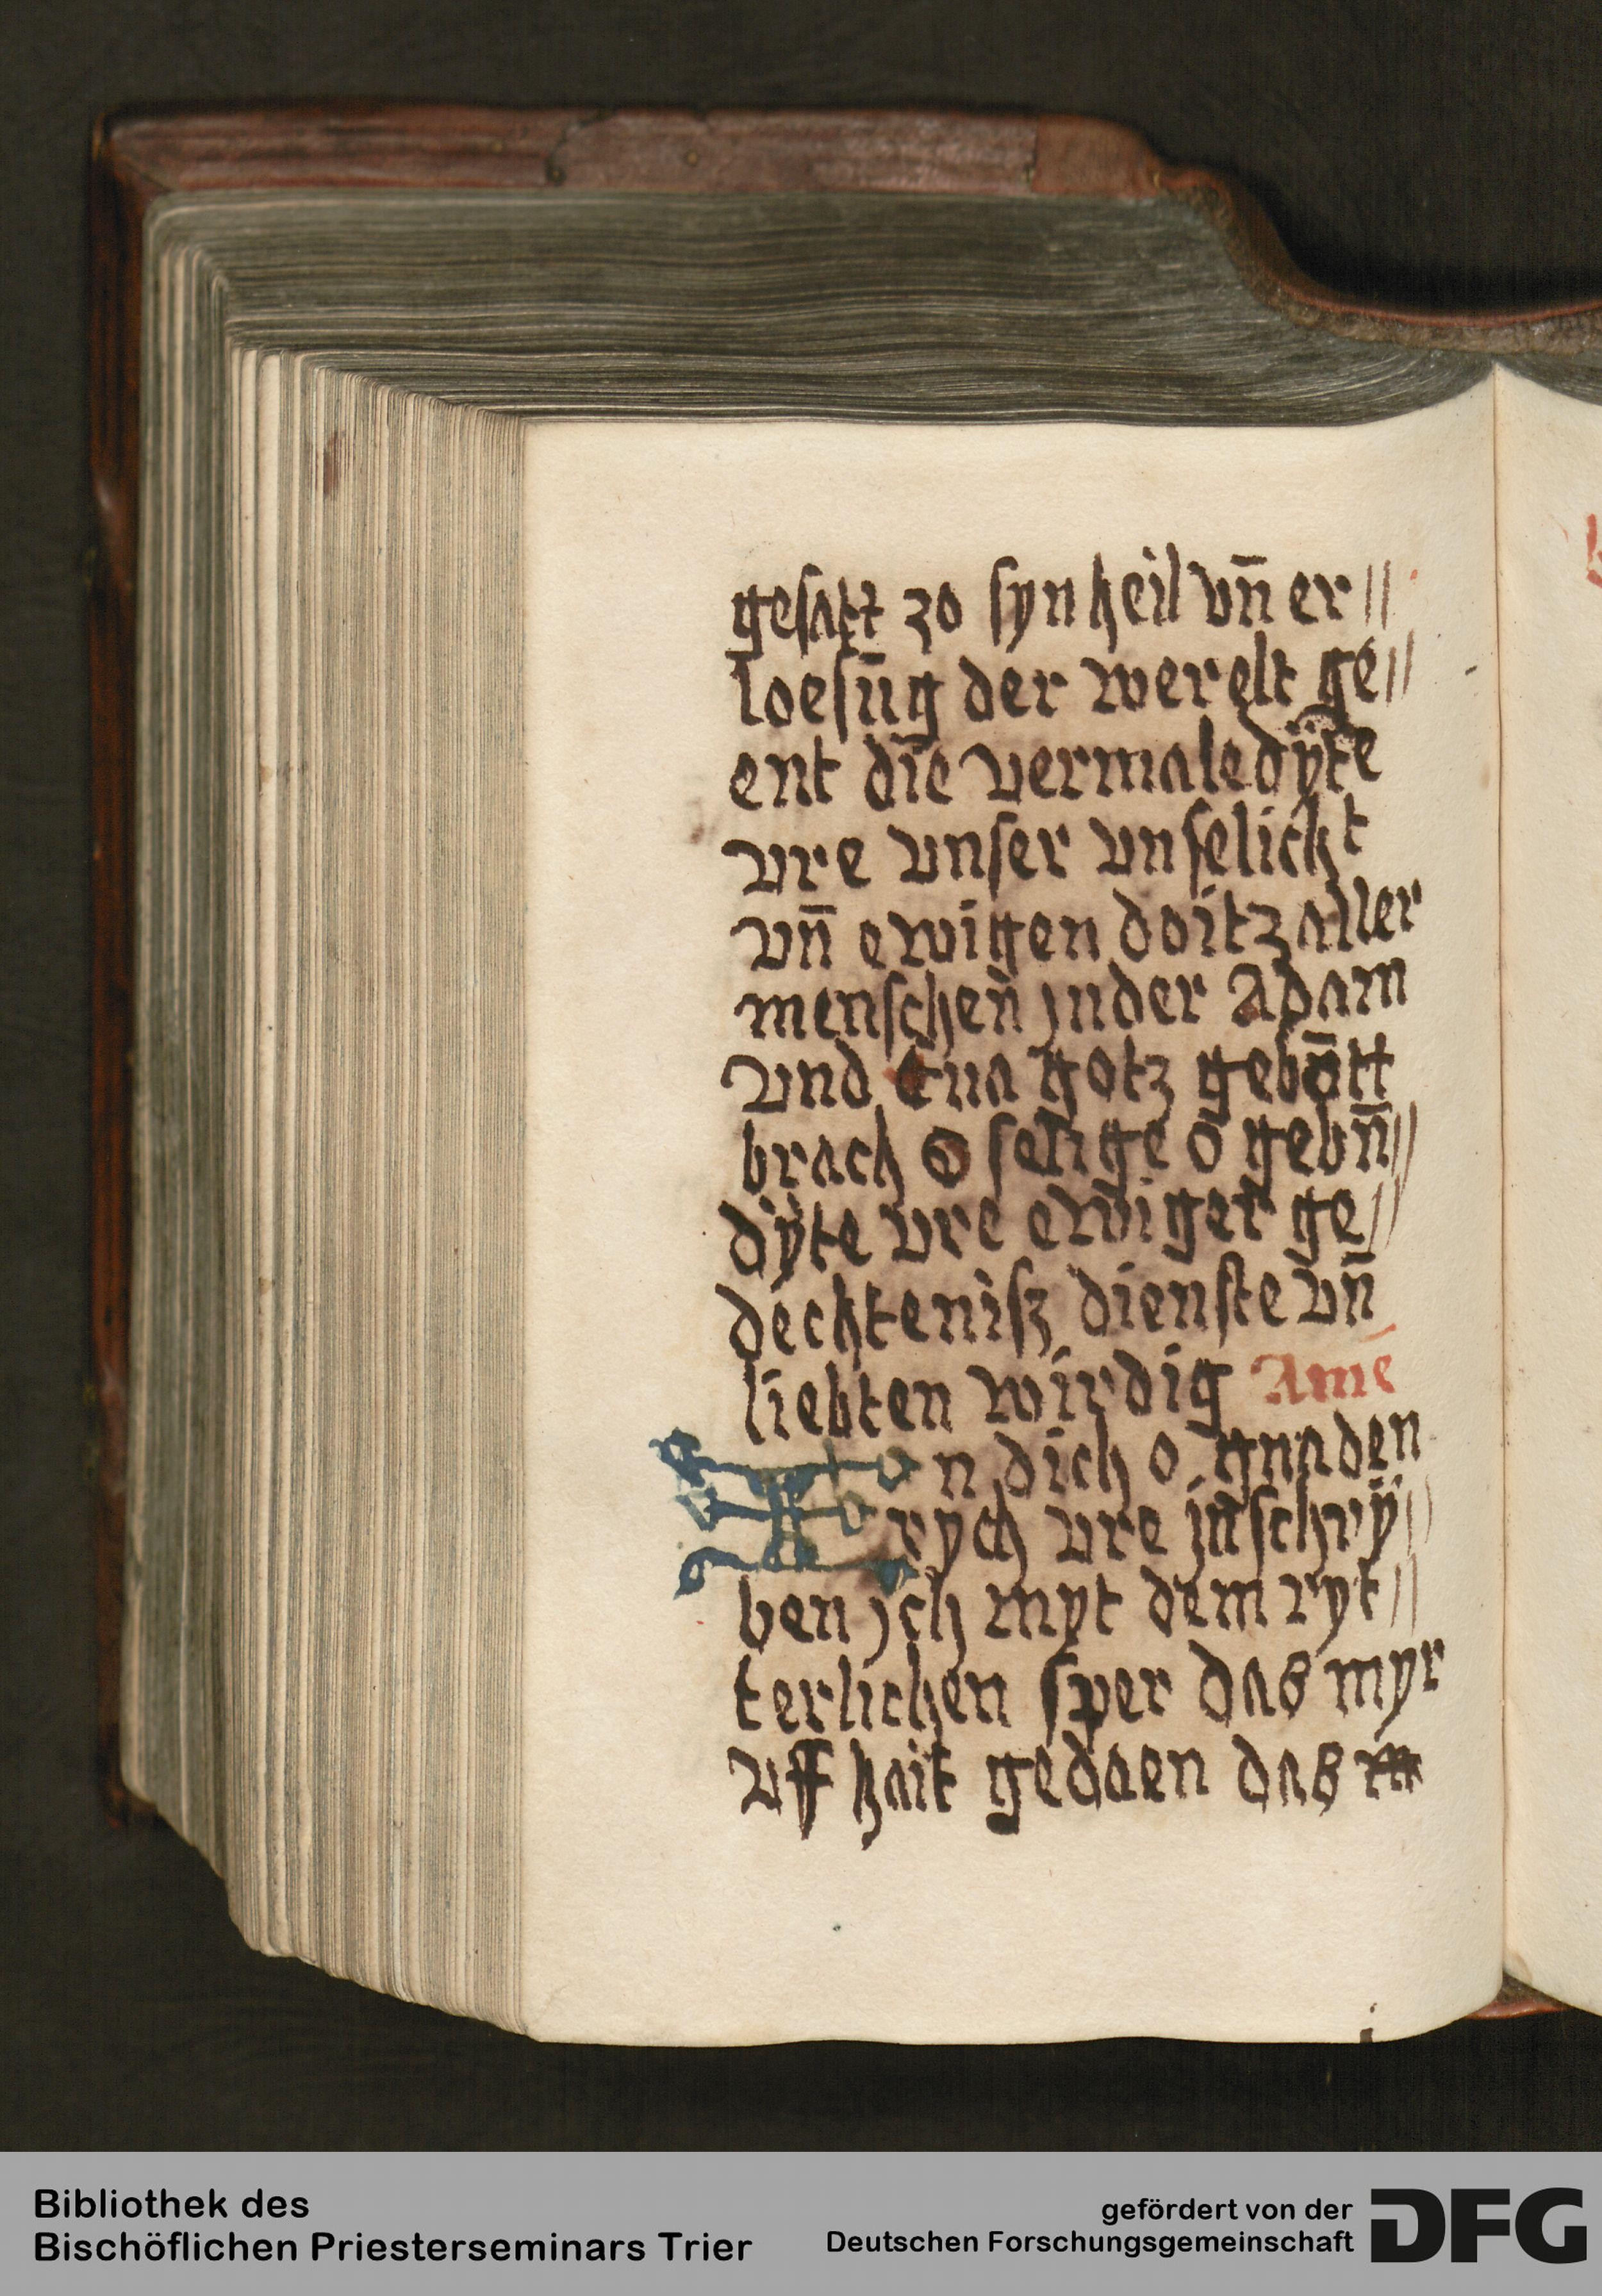 gesatt zo syn heil vn̄ er//
loesūg der werelt ge//
ent die vermaledÿte
vre vnser vnselickt
vn̄ ewigen doitz aller
menschen jnder Adam
vnd Eua gotz gebōtt
brach O selige o gebn̄//
dÿte vre ewiger ge//
dechtenisz dienste vn̄
liebten wirdig Amē
In dich o gnaden
rych vre jnschrÿ//
ben jch myt dem ryt//
terlichen sper das myr
vff hait gedaen das
Bibliothek des
Bischöflichen Priesterseminars Trier
gefördert von der
Deutschen Forschungsgemeinschaft
DFG